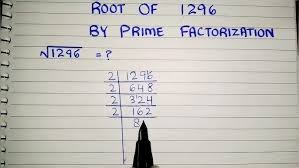 ROOT OF 1296
BY PRIME FACTORIZATION
√1296 = ?
2 1296
2 648
2 324
2 162
8